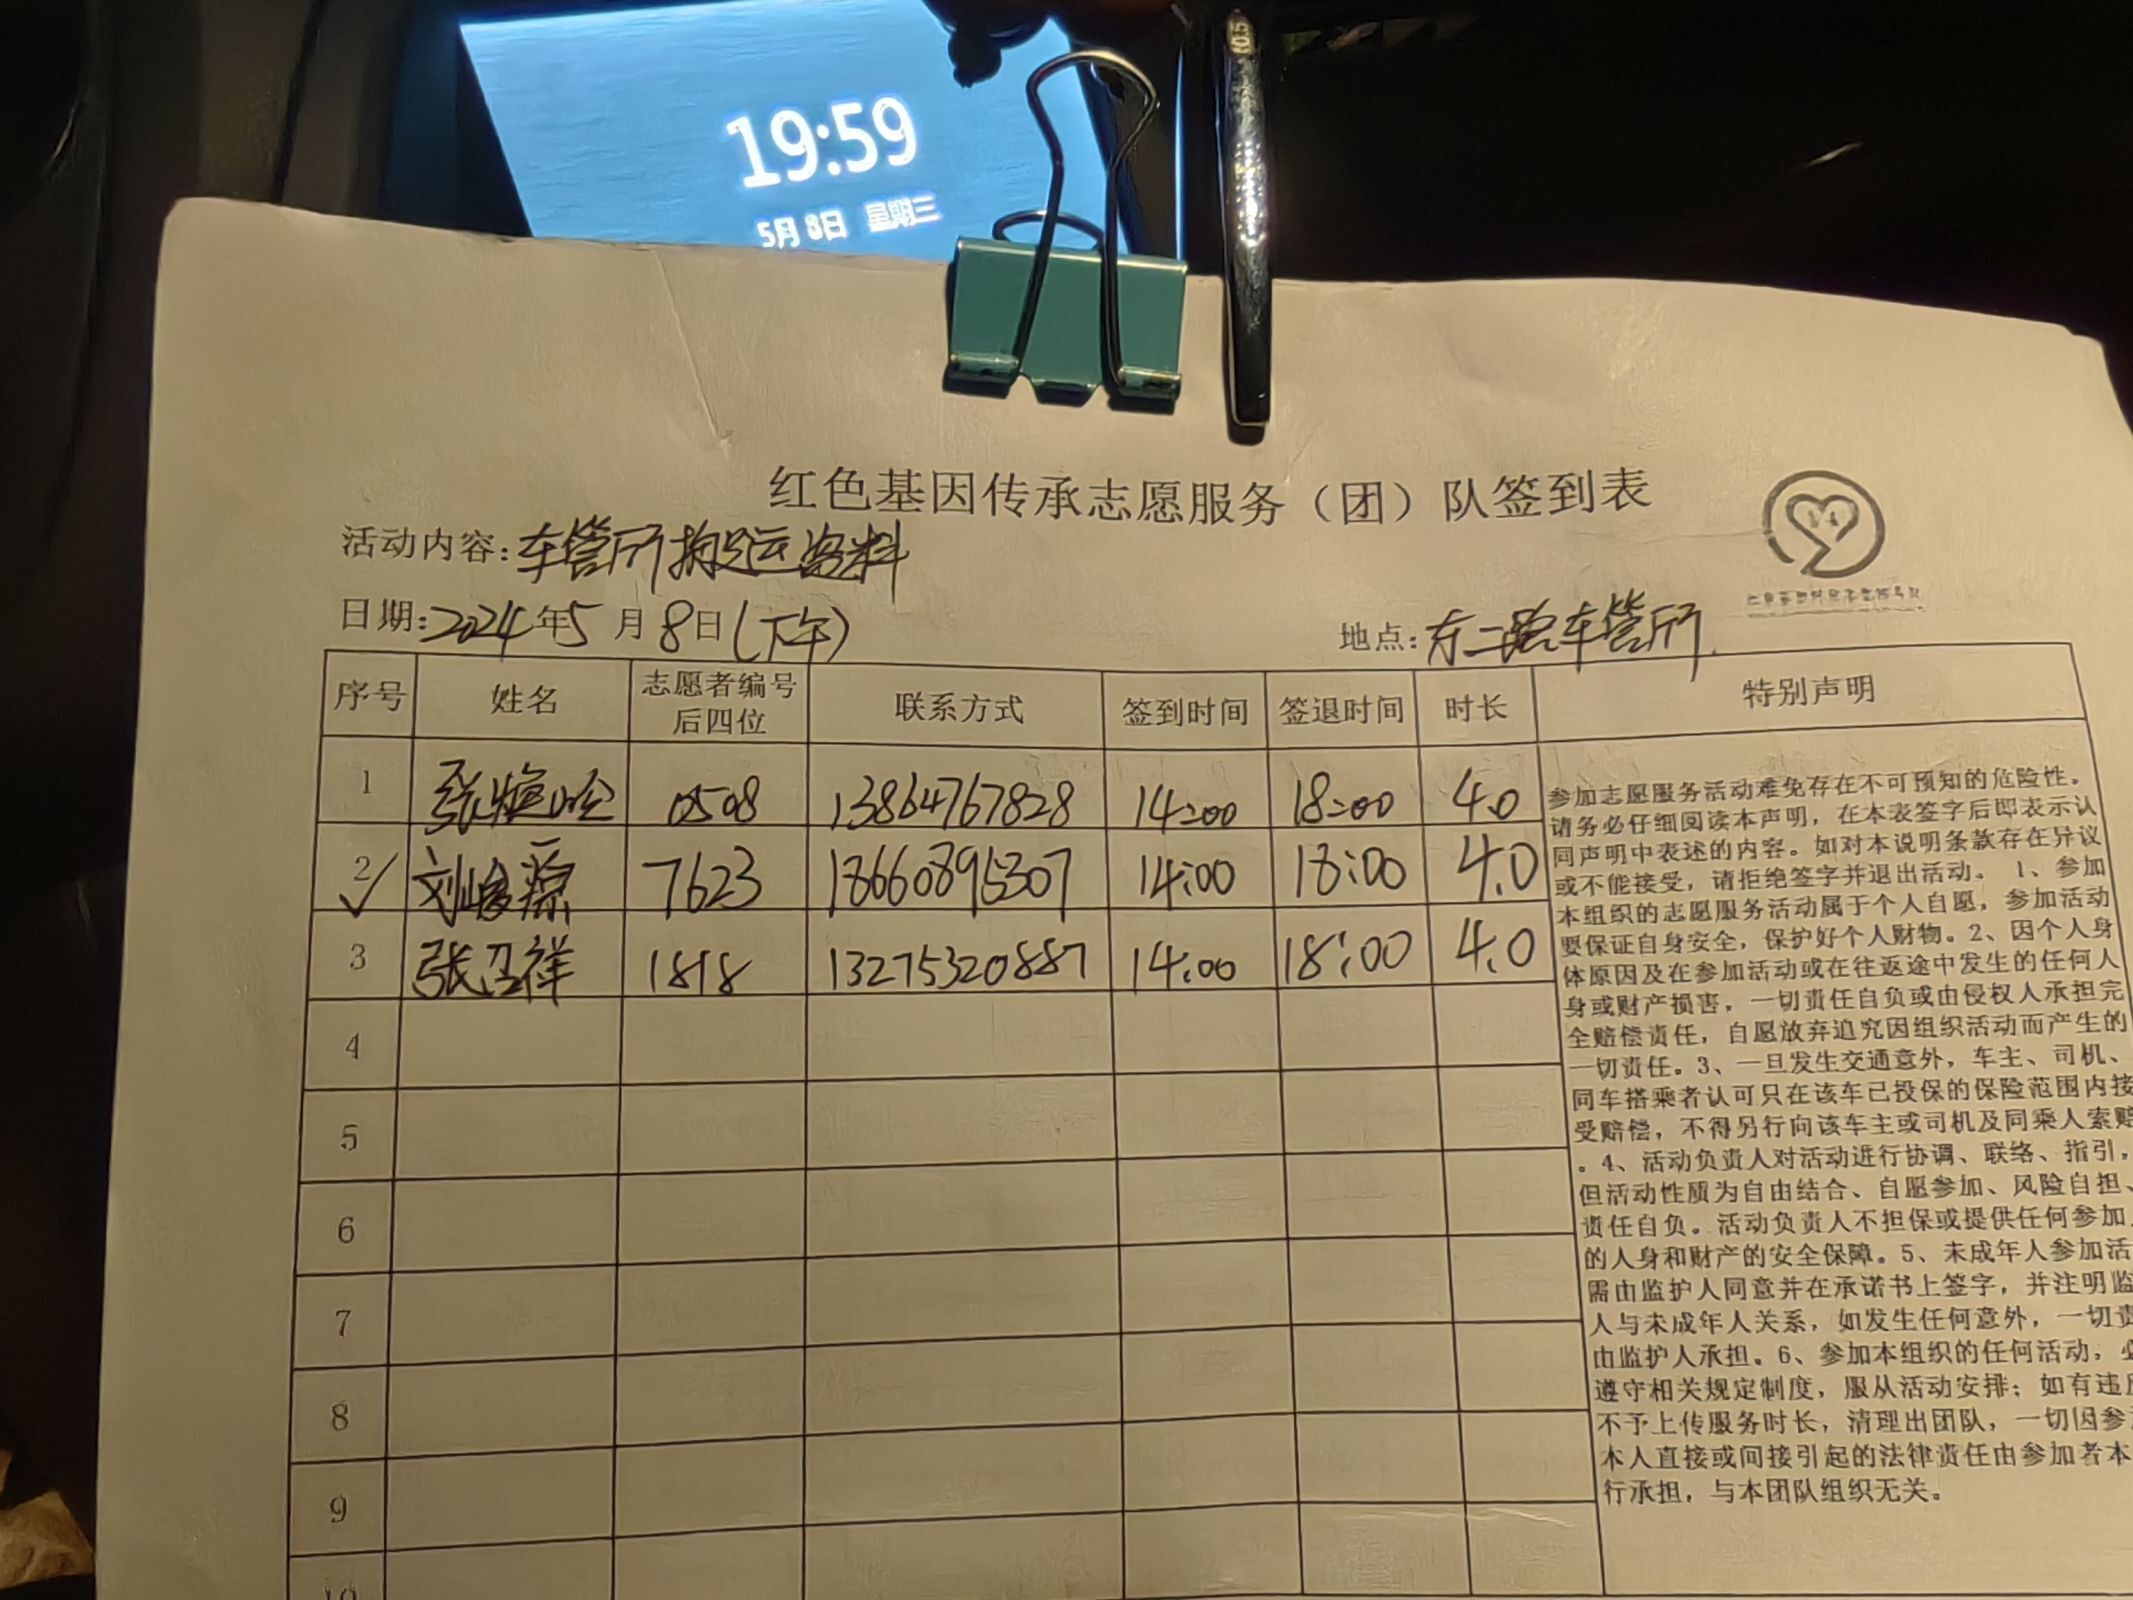 19:59
5月8日 星期三
红色基因传承志愿服务（团）队签到表
活动内容：车管所搬运资料
日期：2024年5月8日（下午）
地点：东二路车管所
序号 姓名 志愿者编号后四位 联系方式 签到时间 签退时间 时长 特别声明
1 张 0508 13864767828 14:00 18:00 4.0
2 刘峻源 7623 18660895307 14:00 18:00 4.0
3 张召祥 1818 13275320887 14:00 18:00 4.0
4
5
6
7
8
9
10
参加志愿服务活动难免存在不可预知的危险性。
请务必仔细阅读本声明，在本表签字后即表示认
同声明中表述的内容。如对本说明条款存在异议
或不能接受，请拒绝签字并退出活动。 1、参加
本组织的志愿服务活动属于个人自愿，参加活动
要保证自身安全，保护好个人财物。2、因个人身
体原因及在参加活动或在往返途中发生的任何人
身或财产损害，一切责任自负或由侵权人承担完
全赔偿责任，自愿放弃追究因组织活动而产生的
一切责任。3、一旦发生交通意外，车主、司机、
同车搭乘者认可只在该车已投保的保险范围内接
受赔偿，不得另行向该车主或司机及同乘人索赔
。4、活动负责人对活动进行协调、联络、指引，
但活动性质为自由结合、自愿参加、风险自担、
责任自负。活动负责人不担保或提供任何参加
的人身和财产的安全保障。5、未成年人参加活
需由监护人同意并在承诺书上签字，并注明监
人与未成年人关系，如发生任何意外，一切责
由监护人承担。6、参加本组织的任何活动，必
遵守相关规定制度，服从活动安排；如有违
不予上传服务时长，清理出团队，一切因参
本人直接或间接引起的法律责任由参加者本
行承担，与本团队组织无关。